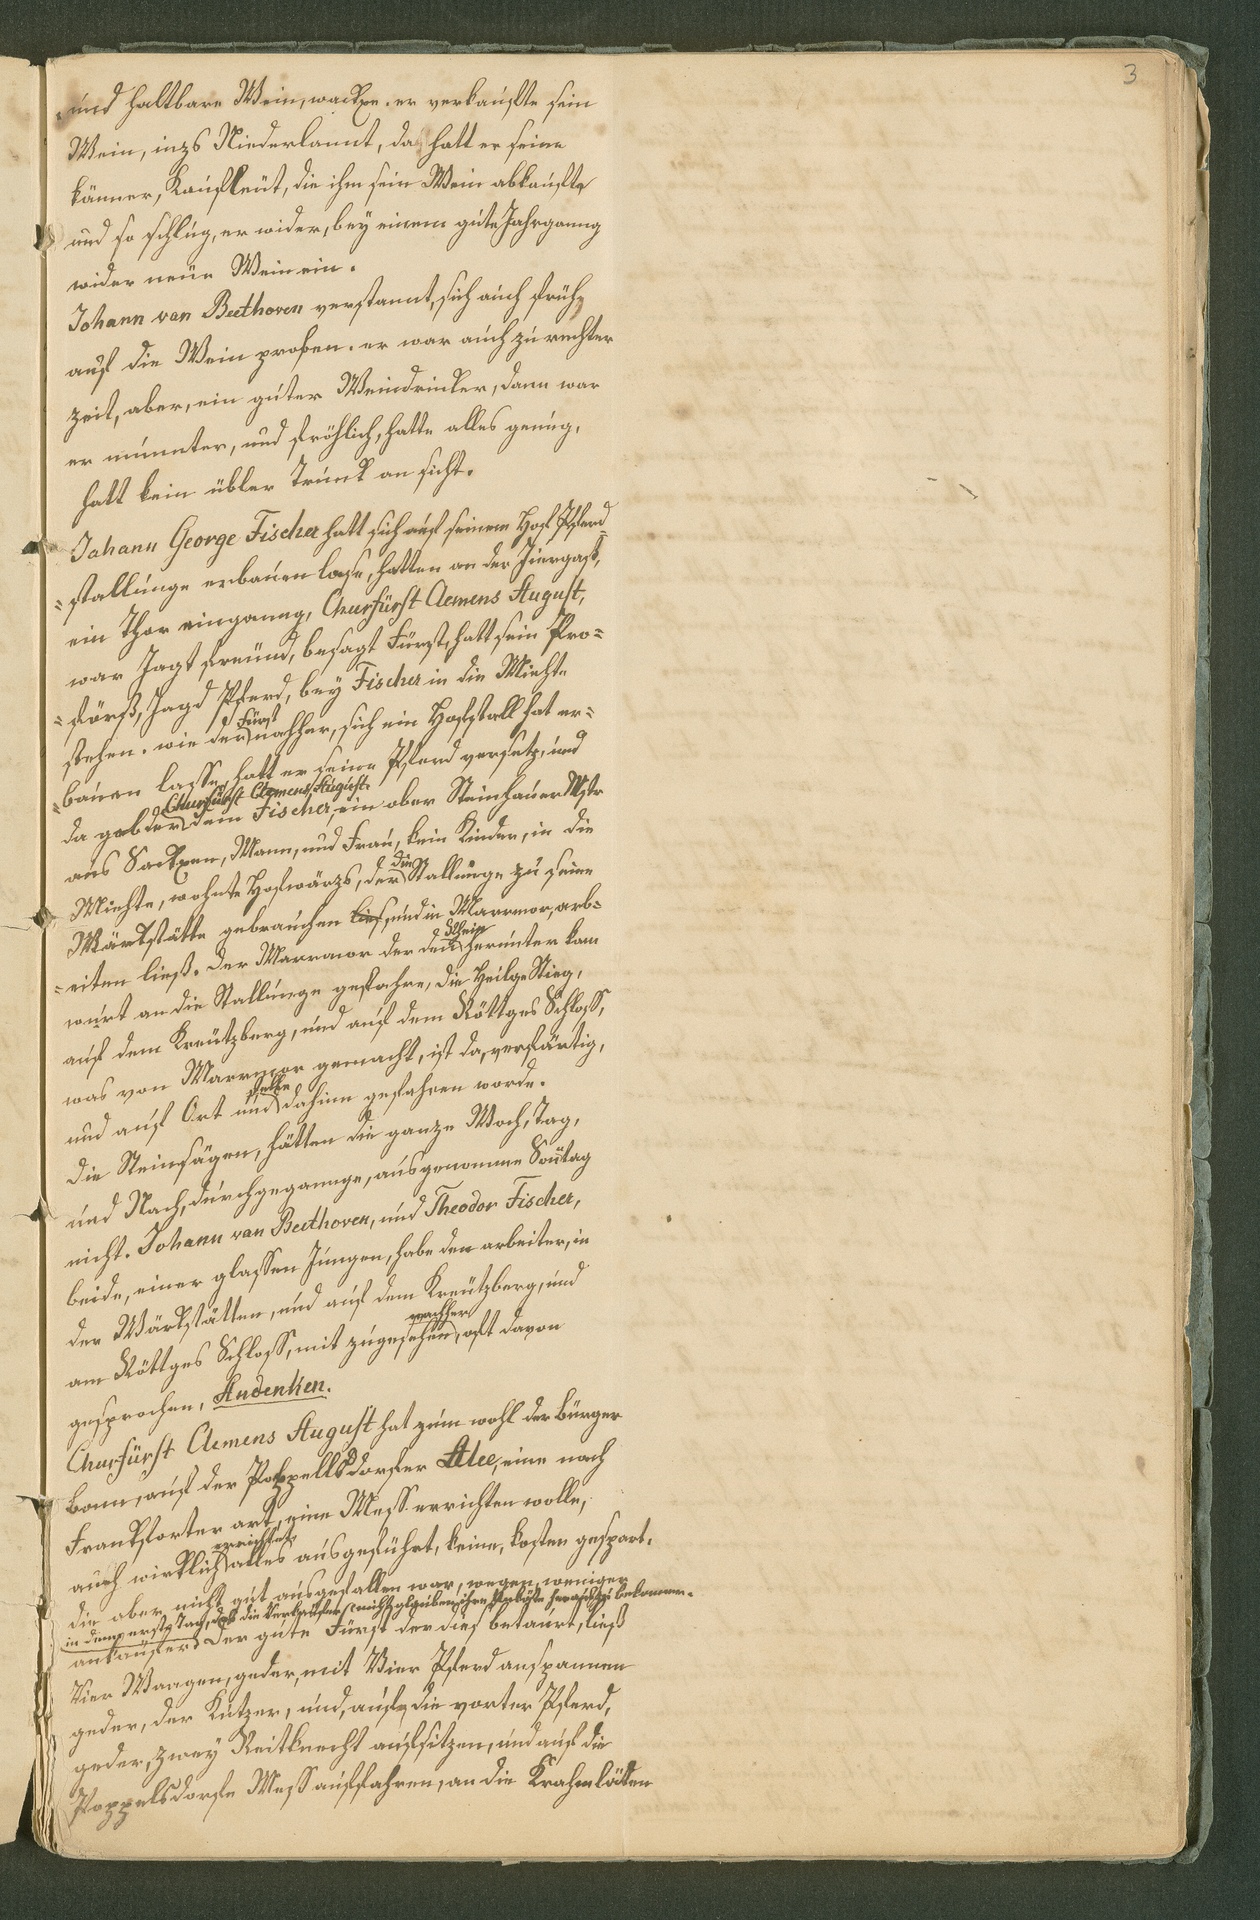 3
und haltbare Wein, wackxe. er verkaufte sein
Wein, inzs Niederlannt, da hatt er seine
känner, Kaufleut, die ihm sein Wein abkaufte
und so schlug, er wider, bey einem gute Jahrganng
wider neue Wein ein.
Johann van Beethoven verstannt, sich auch früh,
auf die Wein proben. er war auch zu rechter
zeit, aber, ein guter Weindrinker, dann war
er munnter, und fröhlich, hatte alles genug,
hatt kein übler Trunck an sich.
Johann George Fischer hatt sich auf seinem Hof Pferd
=stallunge erbauen lasse, hatten an der Giergaß,
ein Thor einganng, Churfürst Clemens August,
war Jagt freund, besagt Fürst, hatt sein Pro=
=förß, Jagd Pferd, bey Fischer in die Miehte
stehen. wie der Fürst nahher, sich ein Hoffstall hat er=
=bauen lasse, hatt er seine Pferd versetz, und
da gab der Churfürst Clemens August. dem Fischer, ein ober Steinhauer Mstr
aus Sackxen, Mann, und Frau, kein Kinder, in die
Miehte, wohnte Hofwärzs, der die Stallunge zu seine
Wärkstätte gebrauchen ließ, und in Marrmor, arb=
=eiten ließ. Der Marrmor der den Rhein herunter kam
wurt an die Stallunge gefahre, die Heilge Stieg,
auf dem Kreutzberg, und auf dem Röttges Schloß,
was von Marrmor gemacht, ist da, verfärtig,
und auf Ort und stelle dahinn gefahren worde.
die Steinsägen, hätten die ganze Woch, Tag,
und Nach, durchgegannge, ausgenomme Sontag
nicht. Johann van Beethoven, und Theodor Fischer,
beide, einer glassen Jungen, habe den arbeiter, in
der Wärkstätten, und auf dem Kreutzberg, und
am Röttges Schloß, mit zugesehen, nachher oft davon
gesprochen, Andenken.
Churfürst Clemens August hat zum wohl der Bürger
Bonn, auf der Poppellsdorfer Alee, eine nach
Frankforter art, eine Mess errichten wolle,
auch wirklich errichtet, alles ausgeführt, keine, kosten gespart,
die aber nicht gut ausgefallen war, wegen weniger
in dem erste Tag, daß die Verkäufer nicht glauben ihre Unköste heraus zu bekommen.
ankäufer. Der gute Fürst der dies betaurt, ließ
Vier Waagen, geder, mit Vier Pferd anspannen
geder, der Kutzer, und, auf die vorter Pferd,
geder, zwey Reitknecht aufsitzen, und auf die
Poppelsdorfe Mess auffahren, an die Krahmläden